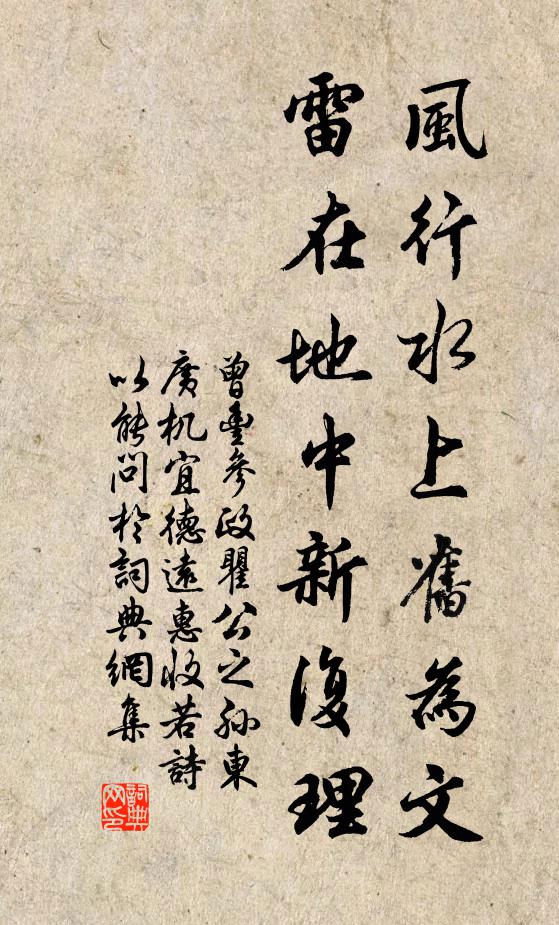 風行水上舊為文
雷在地中新復理
曾豊參政瞿公之孫東
廣机宜德遠惠收若詩
以能問於詞典網集
詞典網印